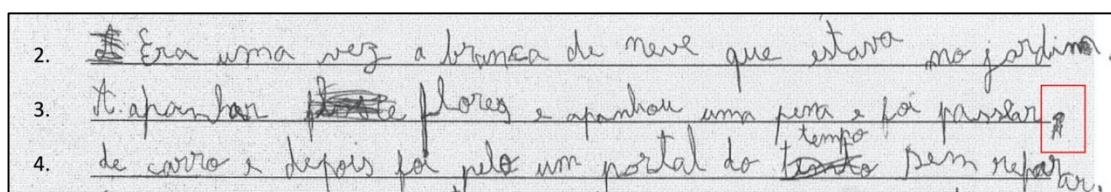 2. Era uma vez a branca de neve que estava no jardim.
3. A apanhar flores e apanhou uma pera e foi passear
4. de carro e depois foi pelo um portal do tempo sem reparar.